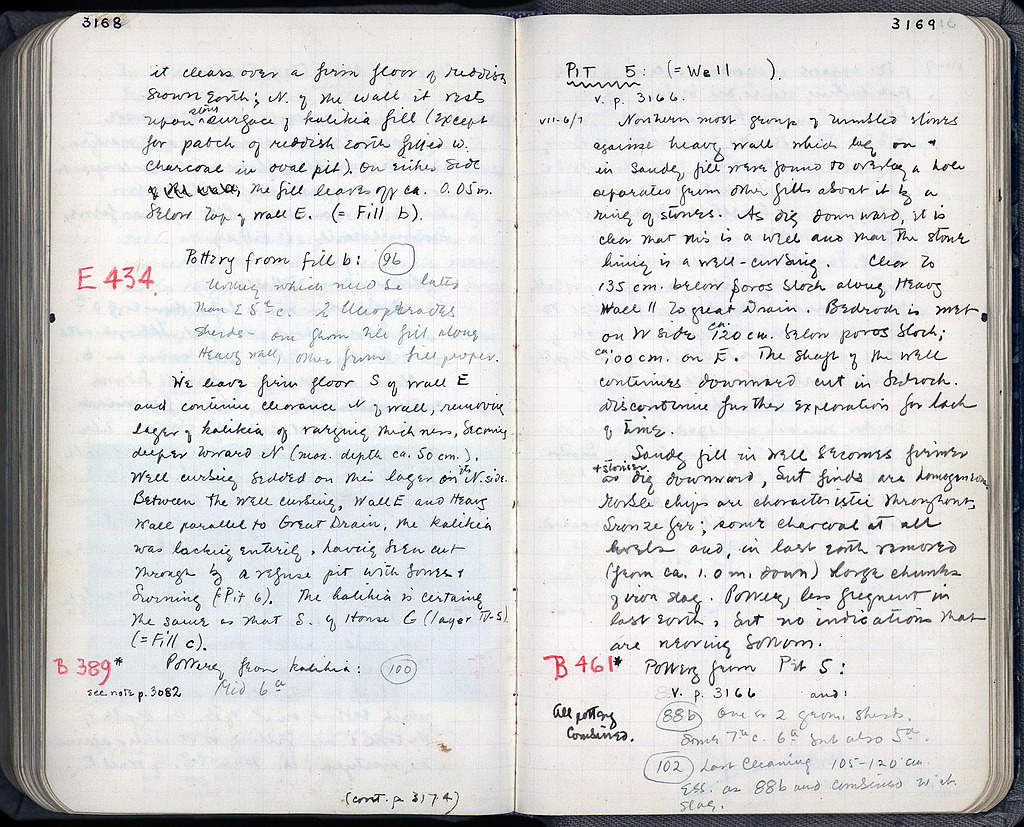 3168
it clears over a firm floor of reddish
brown earth; N. of the wall it rests
upon stony surface of kalikia fill (except
for patch of reddish earth filled w.
charcoal in oval pit). On either side
of the wall, the fill leaves off ca. 0.05 m.
below top of wall E. (= Fill b).
Pottery from fill b: 96
E 434
Nothing which need be later
than E 5th c. 2
sherds - one from the fill along
Heavy wall, other from fill proper.
We leave firm floor S of wall E
and continue clearance N of wall, removing
layer of kalikia of varying thickness, becoming
deeper toward N (max. depth ca. 50 cm.).
Well curbing bedded on this layer on its N. side.
Between the well curbing, Wall E and Heavy
Wall parallel to Great Drain, the kalikia
was lacking entirely, having been cut
through by a refuse pit with bones &
burning (= Pit 6). The kalikia is certainly
the same as that S. of House G (layer IV-S)
(= Fill c).
B 389* Pottery from kalikia: 100
see note p. 3082 Mid 6th
(cont. p. 3174)
3169
PIT 5: (= Well ).
v. p. 3166.
VII-6/7 Northern most group of tumbled stones
against heavy wall which lay on &
in sandy fill were found to overlay a hole
separated from other fills about it by a
ring of stones. As dig downward, it is
clear that this is a well and that the stone
lining is a well-curbing. Clear to
135 cm. below poros block along Heavy
Wall || to great Drain. Bedrock is met
on W side ca. 120 cm. below poros block;
ca. 100 cm. on E. The shaft of the well
continues downward cut in bedrock.
Discontinue further exploration for lack
of time.
Sandy fill in well becomes firmer
+ stonier
as dig downward, but finds are homogeneous.
Marble chips are characteristic throughout,
bronze ; some charcoal at all
levels and, in last earth removed
(from ca. 1.0 m. down) large chunks
of iron slag. Pottery less frequent in
last earth, but no indications that
are nearing bottom.
B 461* Pottery from Pit 5:
v. p. 3166 and:
All pottery
combined.
88b One or 2 geom. sherds.
Some 7th c. 6th but also 5th.
102 Last cleaning 105-120 cm.
Ess. as 88b and combined with
slag.